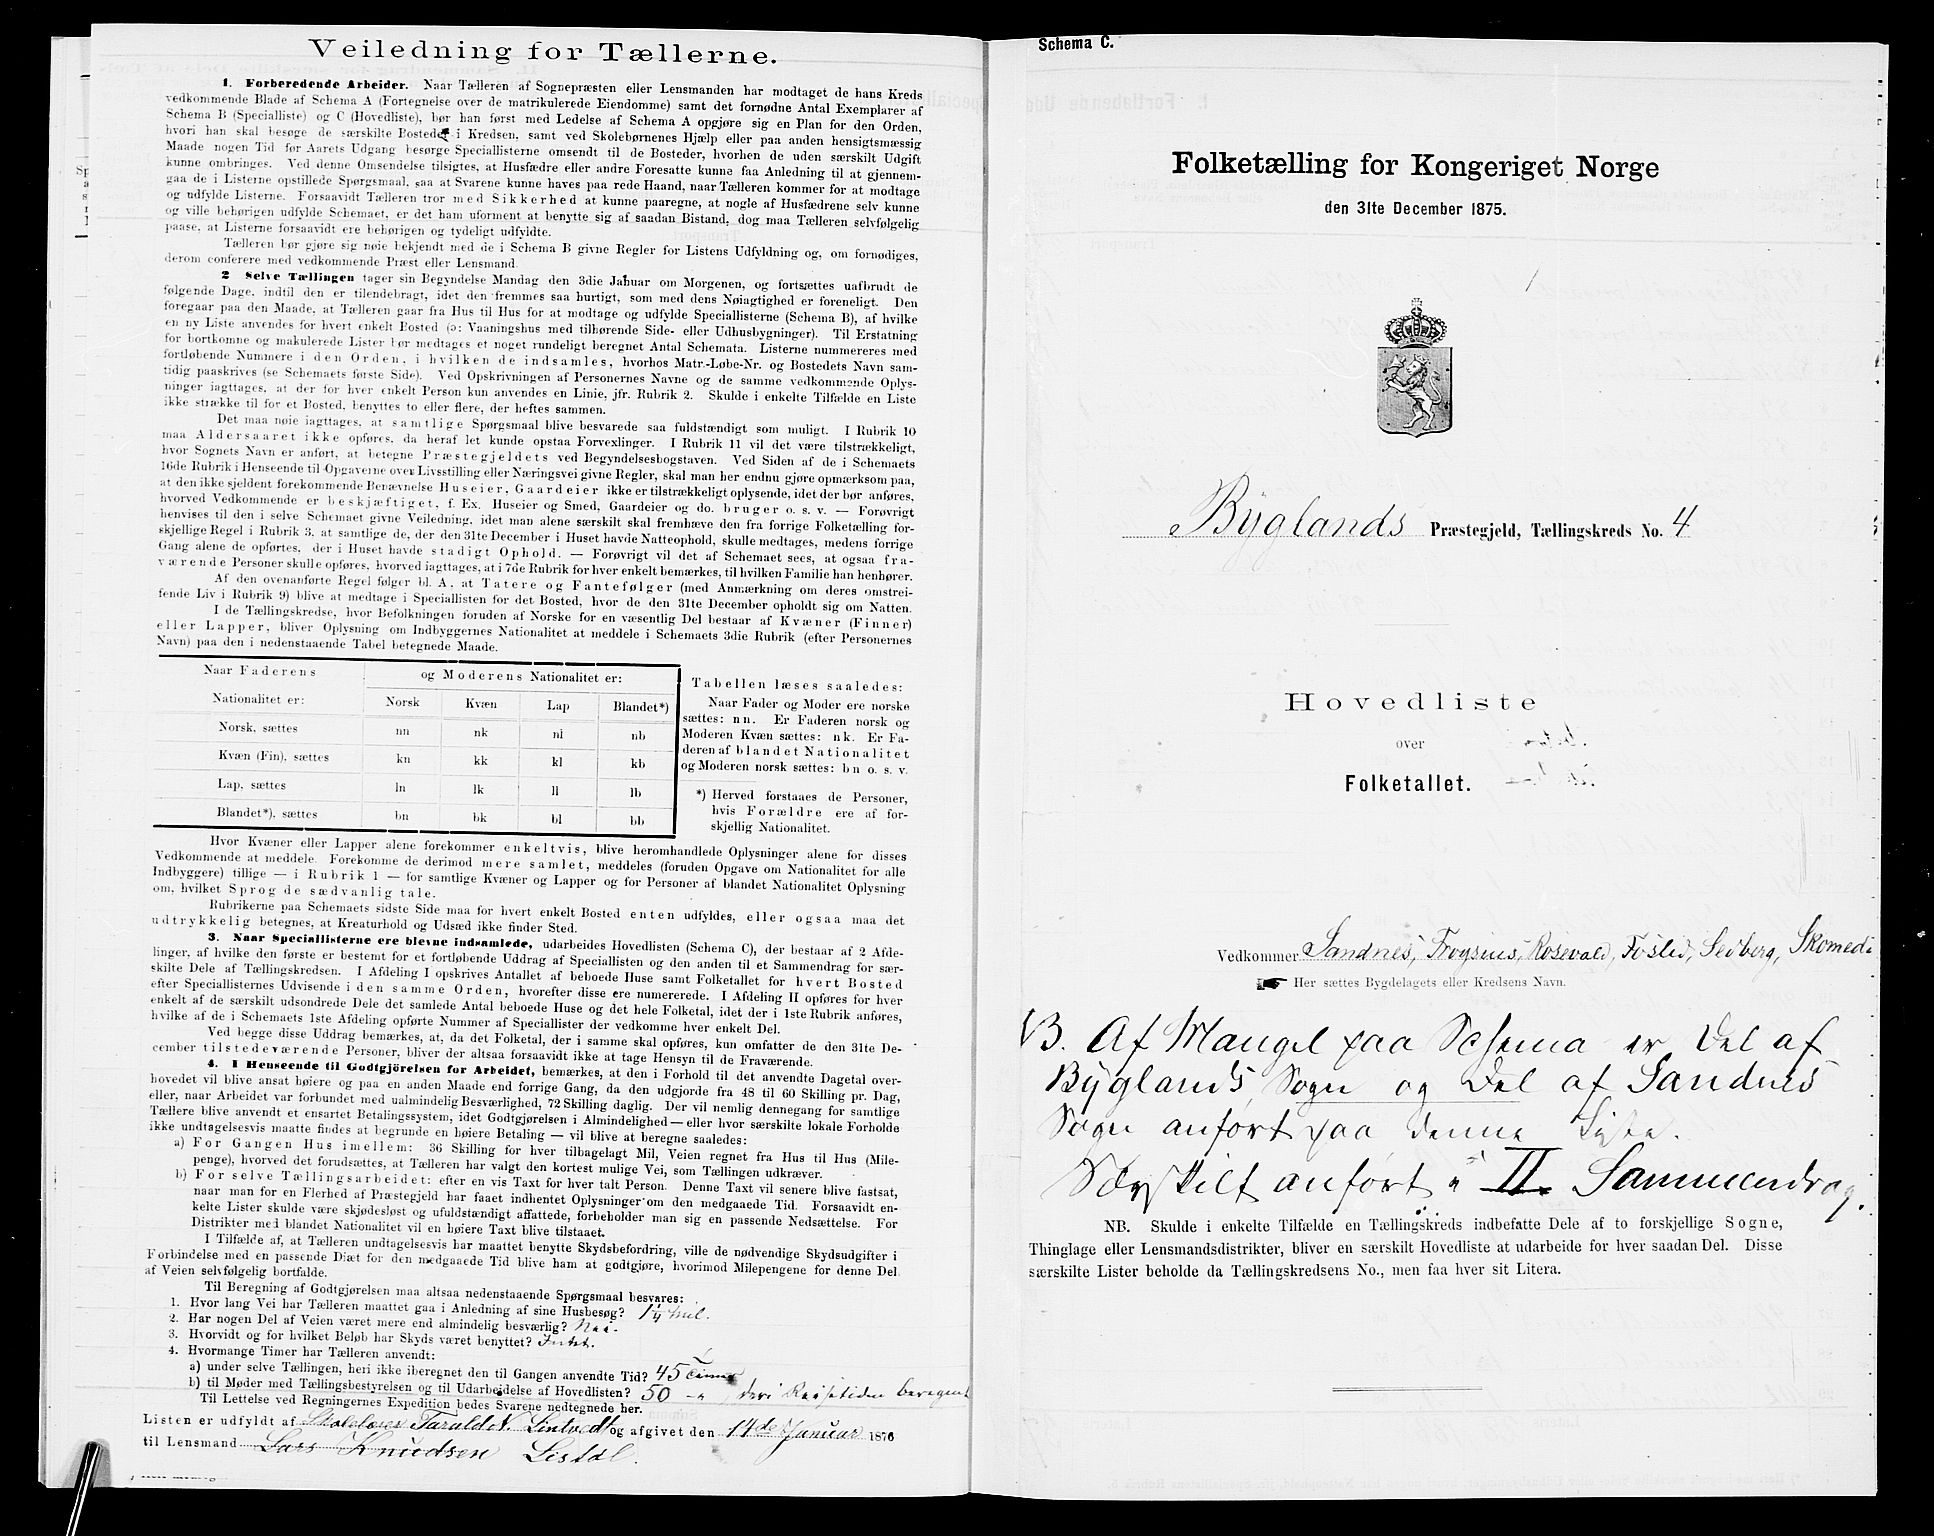 Veiledning for Tællerne.
1. Forberedende Arbeider. Naar Tælleren af Sognepræsten eller Lensmanden har modtaget de hans Kreds
vedkommende Blade af Schema A (Fortegnelse over de matrikulerede Eiendomme) samt det fornødne Antal Exemplarer af
Schema B (Specialliste) og C (Hovedliste), bør han først med Ledelse af Schema A opgjøre sig en Plan for den Orden,
hvori han skal besøge de særskilte Bosteder i Kredsen, samt ved Skolebørnenes Hjælp eller paa anden hensigtsmæssig
Maade nogen Tid før Aarets Udgang besørge Speciallisterne omsendt til de Bosteder, hvorhen de uden særskilt Udgift
kunne ombringes. Ved denne Omsendelse tilsigtes, at Husfædre eller andre Foresatte kunne faa Anledning til at gjennem-
gaa de i Listerne opstillede Spørgsmaal, saa at Svarene kunne haves paa rede Haand, naar Tælleren kommer for at modtage
og udfylde Listerne. Forsaavidt Tælleren tror med Sikkerhed at kunne paaregne, at nogle af Husfædrene selv kunne
og ville behørigen udfylde Schemaet, er det ham uforment at benytte sig af saadan Bistand, dog maa Tælleren selvfølgelig
paase, at Listerne forsaavidt ere behørigen og tydeligt udfyldte.
Tælleren bør gjøre sig nøie bekjendt med de i Schema B givne Regler for Listens Udfyldning og, om fornødiges,
derom conferere med vedkommende Præst eller Lensmand.
2 Selve Tællingen tager sin Begyndelse Mandag den 3die Januar om Morgenen, og fortsættes uafbrudt de
følgende Dage, indtil den er tilendebragt, idet den fremmes saa hurtigt, som med dens Nøiagtighed er foreneligt. Den
foregaar paa den Maade, at Tælleren gaar fra Hus til Hus for at modtage og udfylde Speciallisterne (Schema B), af hvilke
en ny Liste anvendes for hvert enkelt Bosted (ɔ: Vaaningshus med tilhørende Side- eller Udhusbygninger). Til Erstatning
for bortkomne og makulerede Lister bør medtages et noget rundeligt beregnet Antal Schemata. Listerne nummereres med
fortløbende Nummere i den Orden, i hvilken de indsamles, hvorhos Matr.-Løbe-Nr. og Bostedets Navn sam-
tidig paaskrives (se Schemaets første Side). Ved Opskrivningen af Personernes Navne og de samme vedkommende Oplys-
ninger iagttages, at der for hver enkelt Person kun anvendes en Linie, jfr. Rubrik 2. Skulde i enkelte Tilfælde en Liste
ikke strække til for et Bosted, benyttes to eller flere, der heftes sammen.
Det maa nøie iagttages, at samtlige Spørgsmaal blive besvarede saa fuldstændigt som muligt. I Rubrik 10
maa Aldersaaret ikke opføres, da heraf let kunde opstaa Forvexlinger. I Rubrik 11 vil det være tilstrækkeligt,
hvor Sognets Navn er anført, at betegne Præstegjeldets ved Begyndelsesbogstaven. Ved Siden af de i Schemaets
16de Rubrik i Henseende til Opgaverne over Livsstilling eller Næringsvei givne Regler, skal man her endnu gjøre opmærksom paa,
at den ikke sjeldent forekommende Benævnelse Huseier, Gaardeier ikke er tilstrækkeligt oplysende, idet der bør anføres,
hvorved Vedkommende er beskjæftiget, f. Ex. Huseier og Smed, Gaardeier og do. bruger o. s. v. — Forøvrigt
henvises til den i selve Schemaet givne Veiledning, idet man alene særskilt skal fremhæve den fra forrige Folketælling for-
skjellige Regel i Rubrik 3, at samtlige de, der den 31te December i Huset havde Natteophold, skulle medtages, medens forrige
Gang alene de opførtes, der i Huset havde stadigt Ophold. — Forøvrigt vil det af Schemaet sees, at ogsaa fra-
værende Personer skulle opføres, hvorved iagttages, at i 7de Rubrik for hver enkelt bemærkes, til hvilken Familie han henhører.
Af den ovenanførte Regel følger bl. A. at Tatere og Fantefølger (med Anmærkning om deres omstrei-
fende Liv i Rubrik 9) blive at medtage i Speciallisten for det Bosted, hvor de den 31te December opholdt sig om Natten.
I de Tællingskredse, hvor Befolkningen foruden af Norske for en væsentlig Del bestaar af Kvæner (Finner)
eller Lapper, bliver Oplysning om Indbyggernes Nationalitet at meddele i Schemaets 3die Rubrik (efter Personernes
Navn) paa den i nedenstaaende Tabel betegnede Maade.
Naar Faderens Nationalitet er: og Moderens Nationalitet er:
Norsk Kvæn Lap Blandet*)
Norsk, sættes nn nk nl nb
Kvæn (Fin), sættes kn kk kl kb
Lap, sættes ln lk ll lb
Blandet*), sættes bn bk bl bb
Tabellen læses saaledes:
Naar Fader og Moder ere norske
sættes: nn. Er Faderen norsk og
Moderen Kvæn sættes: nk. Er Fa-
deren af blandet Nationalitet
og Moderen norsk sættes: bn o. s. v.
*) Herved forstaaes de Personer,
hvis Forældre ere af for-
skjellig Nationalitet.
Hvor Kvæner eller Lapper alene forekommer enkeltvis, blive heromhandlede Oplysninger alene for disses
Vedkommende at meddele. Forekomme de derimod mere samlet, meddeles (foruden Opgave om Nationalitet for alle
Indbyggere) tillige — i Rubrik 1 — for samtlige Kvæner og Lapper og for Personer af blandet Nationalitet Oplysning
om, hvilket Sprog de sædvanlig tale.
Rubrikerne paa Schemaets sidste Side maa for hvert enkelt Bosted enten udfyldes, eller ogsaa maa det
udtrykkelig betegnes, at Kreaturhold og Udsæd ikke finder Sted.
3. Naar Speciallisterne ere blevne indsamlede, udarbeides Hovedlisten (Schema C), der bestaar af 2 Afde-
linger, af hvilke den første er bestemt for et fortløbende Uddrag af Speciallisten og den anden til et Sammendrag for sær-
skilte Dele af Tællingskredsen. I Afdeling I opskrives Antallet af beboede Huse samt Folketallet for hvert Bosted
efter Speciallisternes Udvisende i den samme Orden, hvorefter disse ere numererede. I Afdeling II opføres for hver
enkelt af de særskilt udsondrede Dele det samlede Antal beboede Huse og det hele Folketal, idet der i 1ste Rubrik anføres,
hvilke af de i Schemaets 1ste Afdeling opførte Nummer af Specialister der vedkomme hver enkelt Del.
Ved begge disse Uddrag bemærkes, at, da det Folketal, der i samme skal opføres, kun omfatter de den 31te De-
cember tilstedeværende Personer, bliver der altsaa forsaavidt ikke at tage Hensyn til de Fraværende.
4. I Henseende til Godtgjörelsen for Arbeidet, bemærkes, at den i Forhold til det anvendte Dagetal over-
hovedet vil blive ansat høiere og paa en anden Maade end forrige Gang, da den udgjorde fra 48 til 60 Skilling pr. Dag,
eller, naar Arbeidet var forbundet med ualmindelig Besværlighed, 72 Skilling daglig. Der vil nemlig dennegang for samtlige
Tællere blive anvendt et ensartet Betalingssystem, idet Godtgjørelsen i Almindelighed — eller hvor særskilte lokale Forholde
ikke undtagelsesvis maatte findes at begrunde en høiere Betaling — vil blive at beregne saaledes:
a) For Gangen Hus imellem: 36 Skilling for hver tilbagelagt Mil, Veien regnet fra Hus til Hus (Mile-
penge), hvorved det forudsættes, at Tælleren har valgt den kortest mulige Vei, som Tællingen udkræver.
b) For selve Tællingsarbeidet: efter en vis Taxt for hver talt Person. Denne Taxt vil senere blive fastsat,
naar man for en Flerhed af Præstegjeld har faaet indhentet Oplysninger om den medgaaede Tid. Forsaavidt en-
kelte Lister skulde være skjødesløst og ufuldstændigt affattede, forbeholder man sig en passende Nedsættelse. For
Distrikter med blandet Nationalitet vil en høiere Taxt blive tilstaaet.
I Tilfælde af, at Tælleren undtagelsesvis har maattet benytte Skydsbefordring, ville de nødvendige Skydsudgifter i
Forbindelse med en passende Diæt for den medgaaede Tid blive ham at godtgjøre, hvorimod Milepengene for denne Del
af Veien selvfølgelig bortfalde.
Til Beregning af Godtgjørelsen maa altsaa nedenstaaende Spørgsmaal besvares:
1. Hvor lang Vei har Tælleren maattet gaa i Anledning af sine Husbesøg? 1¼ Mil.
2. Har nogen Del af Veien været mere end almindelig besværlig? Nei.
3. Hvorvidt og for hvilket Beløb har Skyds været benyttet? Intet.
4. Hvormange Timer har Tælleren anvendt:
a) under selve Tællingen, heri ikke iberegnet den til Gangen anvendte Tid? 45 Timer
b) til Møder med Tællingsbestyrelsen og til Udarbeidelse af Hovedlisten? 50 — " , deri Reisetiden beregnet
Til Lettelse ved Regningernes Expedition bedes Svarene nedtegnede her.
Listen er udfyldt af Skolelærer Tarald N. Lintvedt og afgivet den 14de Januar 1876
til Lensmand Lars Knudsen Lisdal.
Schema C.
Folketælling for Kongeriget Norge
den 31te December 1875.
Byglands Præstegjeld, Tællingskreds No. 4
Hovedliste
over
Folketallet.
Vedkommer Sandnes, Froysnes, Rosevald, Foslid, Sedberg, Skomedi
Her sættes Bygdelagets eller Kredsens Navn.
NB. Af Mangel paa Schema er Del af
Byglands Sogn og Del af Sandnes
Sogn anført paa denne Liste.
Særskilt anført i II. Sammendrag.
NB. Skulde i enkelte Tilfælde en Tællingskreds indbefatte Dele af to forskjellige Sogne,
Thinglage eller Lensmandsdistrikter, bliver en særskilt Hovedliste at udarbeide for hver saadan Del. Disse
særskilte Lister beholde da Tællingskredsens No., men faa hver sit Litera.